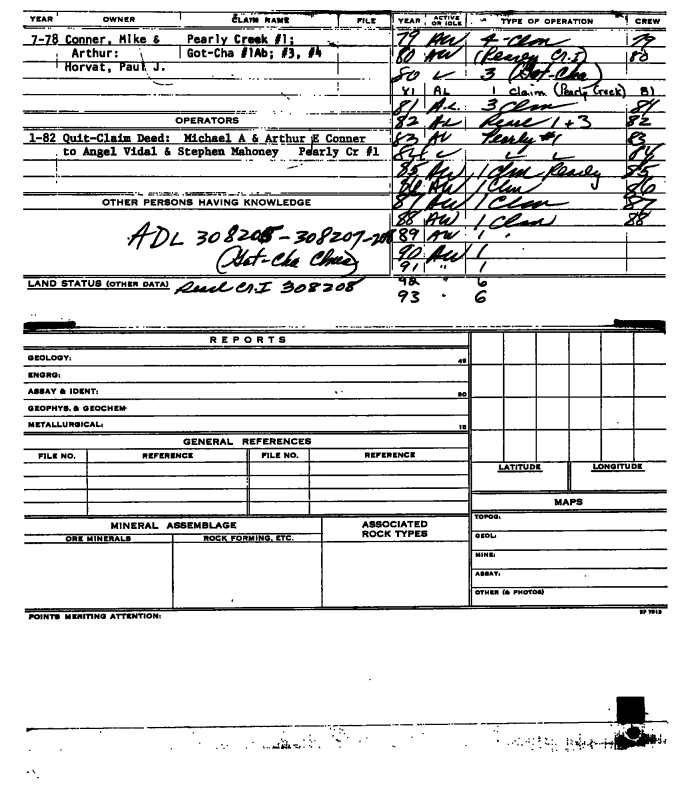 YEAR OWNER CLAIM NAME FILE YEAR ACTIVE OR IDLE TYPE OF OPERATION CREW
7-78 Conner, Mike & Pearly Creek #1; 79 AW 4-Clm 79
Arthur: Got-Cha #1Ab; #3, #4 80 AW (Pearly Cr. I) 80
Horvat, Paul J. 80 3 (Got-Cha)
81 AL 1 claim (Pearly Creek) 81
81 A.L. 3 Clm
OPERATORS 82 AL 1 + 3 82
1-82 Quit-Claim Deed: Michael A & Arthur E Conner 83 AW Pearly #1 83
to Angel Vidal & Stephen Mahoney Pearly Cr #1 84 84
85 AW 1 Clm Pearly 85
86 AW 1 Clm 86
OTHER PERSONS HAVING KNOWLEDGE 87 AW 1 Clm 87
88 AW 1 Clm 88
ADL 308205-308207-208 89 AW 1
(Got-Cha Clms) 90 AW 1
91 " 1
LAND STATUS (OTHER DATA) Pearl Cr. I 308208 92 " 6
93 " 6
REPORTS
GEOLOGY: 45
ENGRG:
ASSAY & IDENT: 30
GEOPHYS. & GEOCHEM
METALLURGICAL: 15
GENERAL REFERENCES
FILE NO. REFERENCE FILE NO. REFERENCE
LATITUDE LONGITUDE
MAPS
MINERAL ASSEMBLAGE ASSOCIATED ROCK TYPES TOPOG:
ORE MINERALS ROCK FORMING, ETC. GEOL:
MINE:
ASSAY:
OTHER (& PHOTOS)
POINTS MERITING ATTENTION: